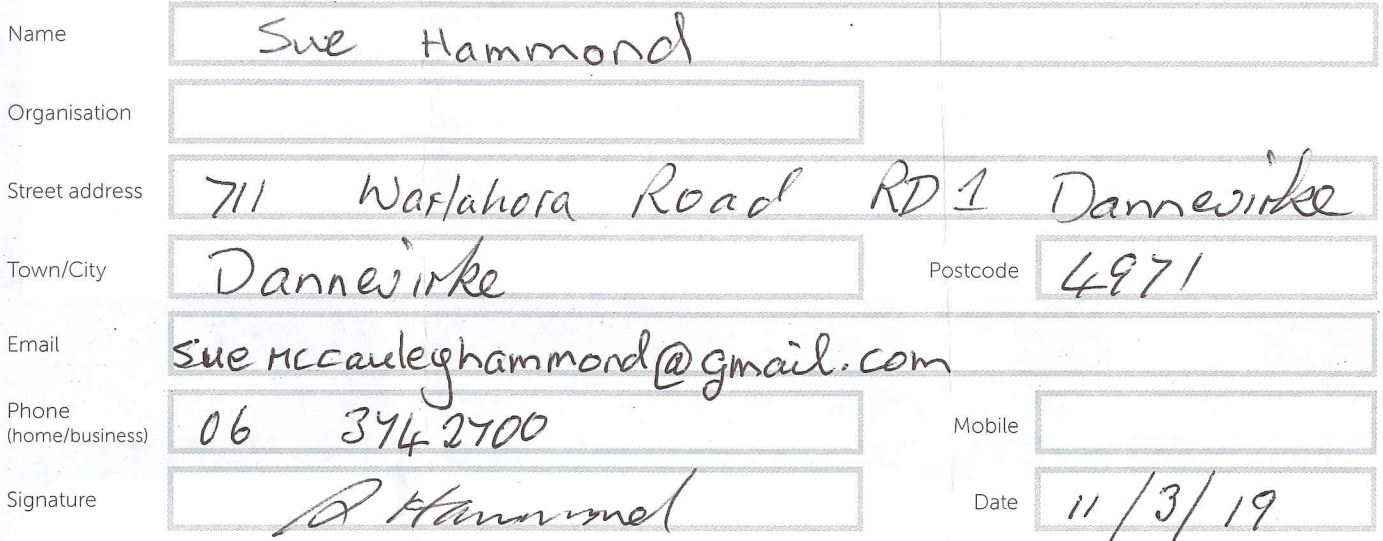 Name Sue Hammond
Organisation
Street address 711 Waitahora Road RD 1 Dannevirke
Town/City Dannevirke Postcode 4971
Email suemccauleyhammond@gmail.com
Phone
(home/business) 06 3742700 Mobile
Signature S Hammond Date 11/3/19